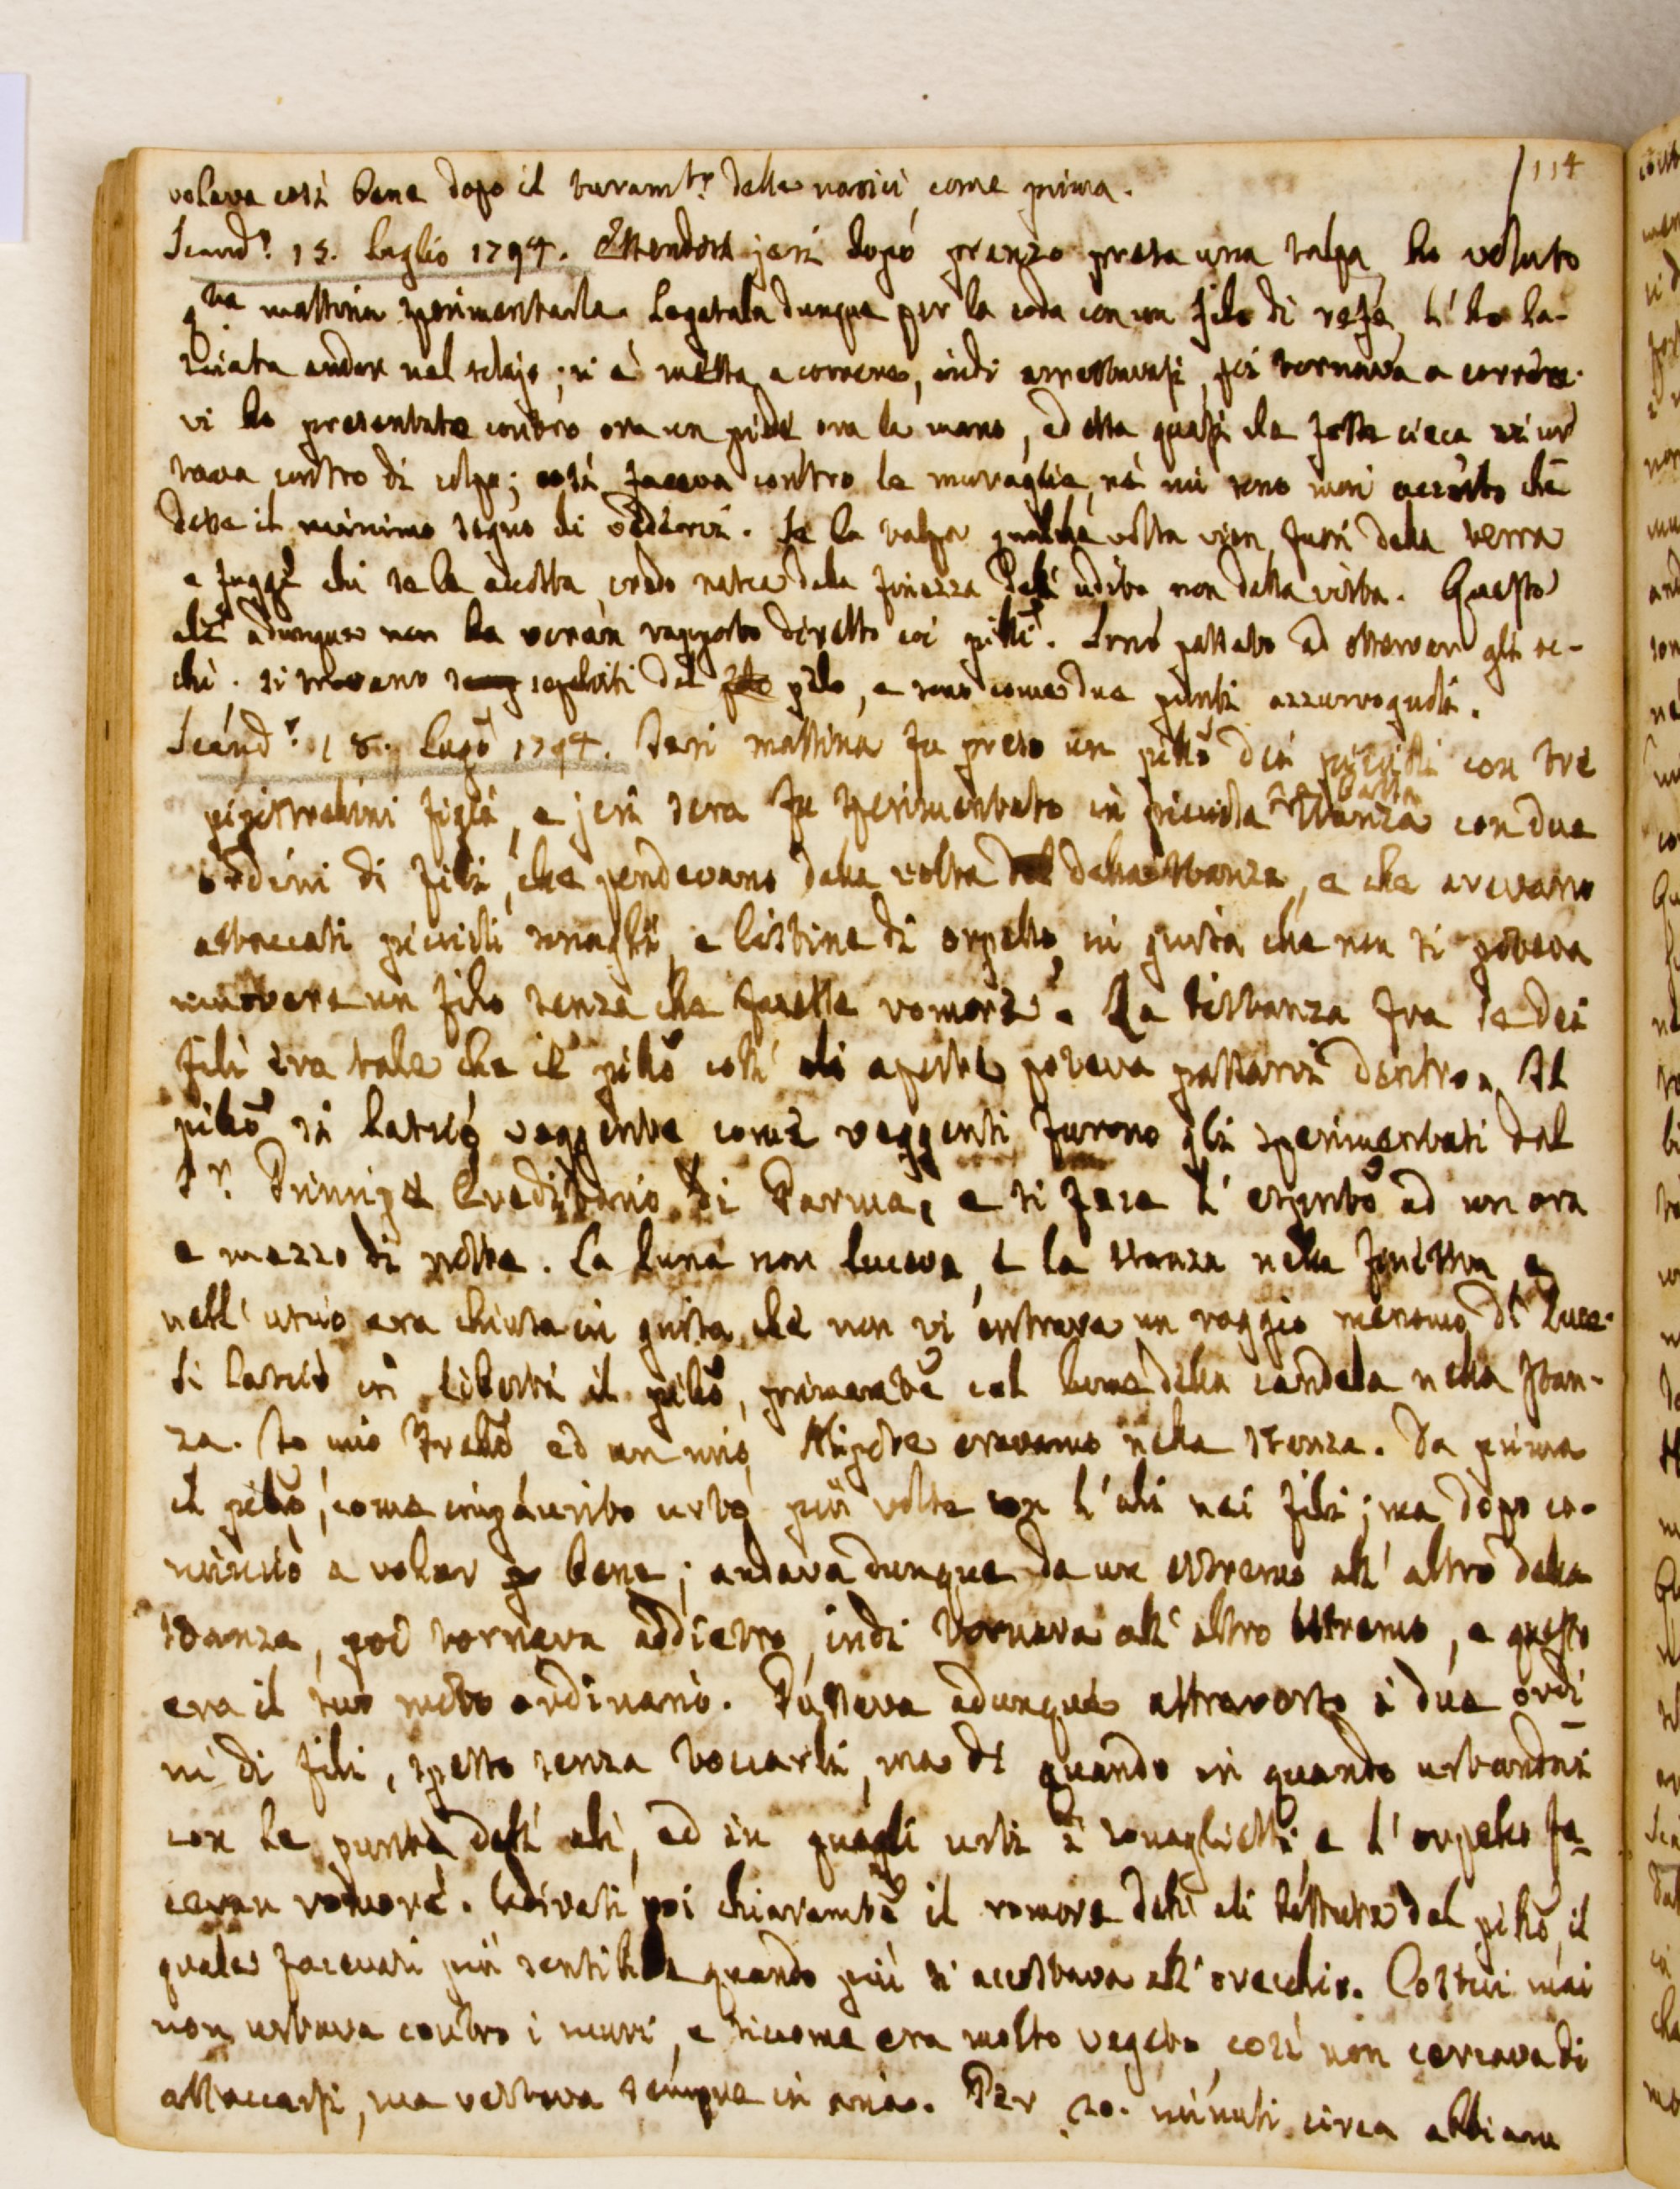 114
volava così bene dopo il turam.to delle narici come prima.
Scand.o 15. Luglio 1794. Essendosi jeri dopo pranzo presa una talpa, ho voluto
q.ta mattina sperimentarla. Legatala dunque per la coda con un filo di refe, l'ho la-
sciata andar nel selejo; si è messa a correre, indi arrestavasi, poi tornava a correre.
vi ho presentato contro ora un piede ora la mano, ed essa quasi che fosse cieca vi ur
tava contro di colpo; così faceva contro le muraglie, nè mi sono mai accorto che
desse il minimo segno di vederci. Se la talpa qualche volta vien fuori della terra
e fugge chi se le accosta, credo nasca dalla finezza dell'udito non dalla vista. Questo
adunque non ha verun rapporto diretto coi pilli. Sono passato ad osservar gli oc-
chi. si trovano sepolti del pelo, e sono come due punti azzurrognoli.
Scand.o 18. Lugo 1794. Jeri mattina fu preso un pillo dei piccoli con tre
pipistrellini figli, e jeri sera fu sperimentato in picciola bassa stanza con due
ordini di fili, che pendevano dalla volta della stanza, e che avevano
attaccati piccioli sonagli, e listine di orpello, in guisa che non si poteva
muovere un filo senza che facesse romore. La distanza fra se dei
fili era tale che il pillo coll'ali aperte poteva passarvi dentro. Il
pillo si lasciò veggente come veggenti furono gli sperimentati dal
S.r Principe Ereditario di Parma, e si fece l'esperito ad un ora
e mezzo di notte. La luna non luceva, e la stanza nella finestra e
nell'uscio era chiusa in guisa, che non vi entrava un raggio menomo di luce.
Si lasciò in libertà il pillo, primamte col lume della candela nella stan-
za. Io, mio Fratello ed un mio Nipote eravamo nella stanza. Da prima
il pillo, come impaurito urtò più volte con l'ali nei fili; ma dopo co-
minciò a volar bene; andava dunque da un estremo all'altro della
stanza, poi tornava addietro, indi tornava all'altro estremo, e questo
era il suo moto ordinario. Passava adunque attraverso i due ordi
ni di fili, spesso senza toccarli, ma di quando in quando urtandoli
con le punte dell'ali, ed in quegli urti i sonaglietti e l'orpello fa-
cevan romore. Udivasi poi chiaramte il romore dell'ali battute dal pillo, il
quale facevasi più sensibile quando più si accostava all'orecchio. Costui mai
non urtava contro i muri, e siccome era molto vegeto, così non cercava di
attaccarsi, ma restava sempre in aria. Per 20. minuti circa abbiam